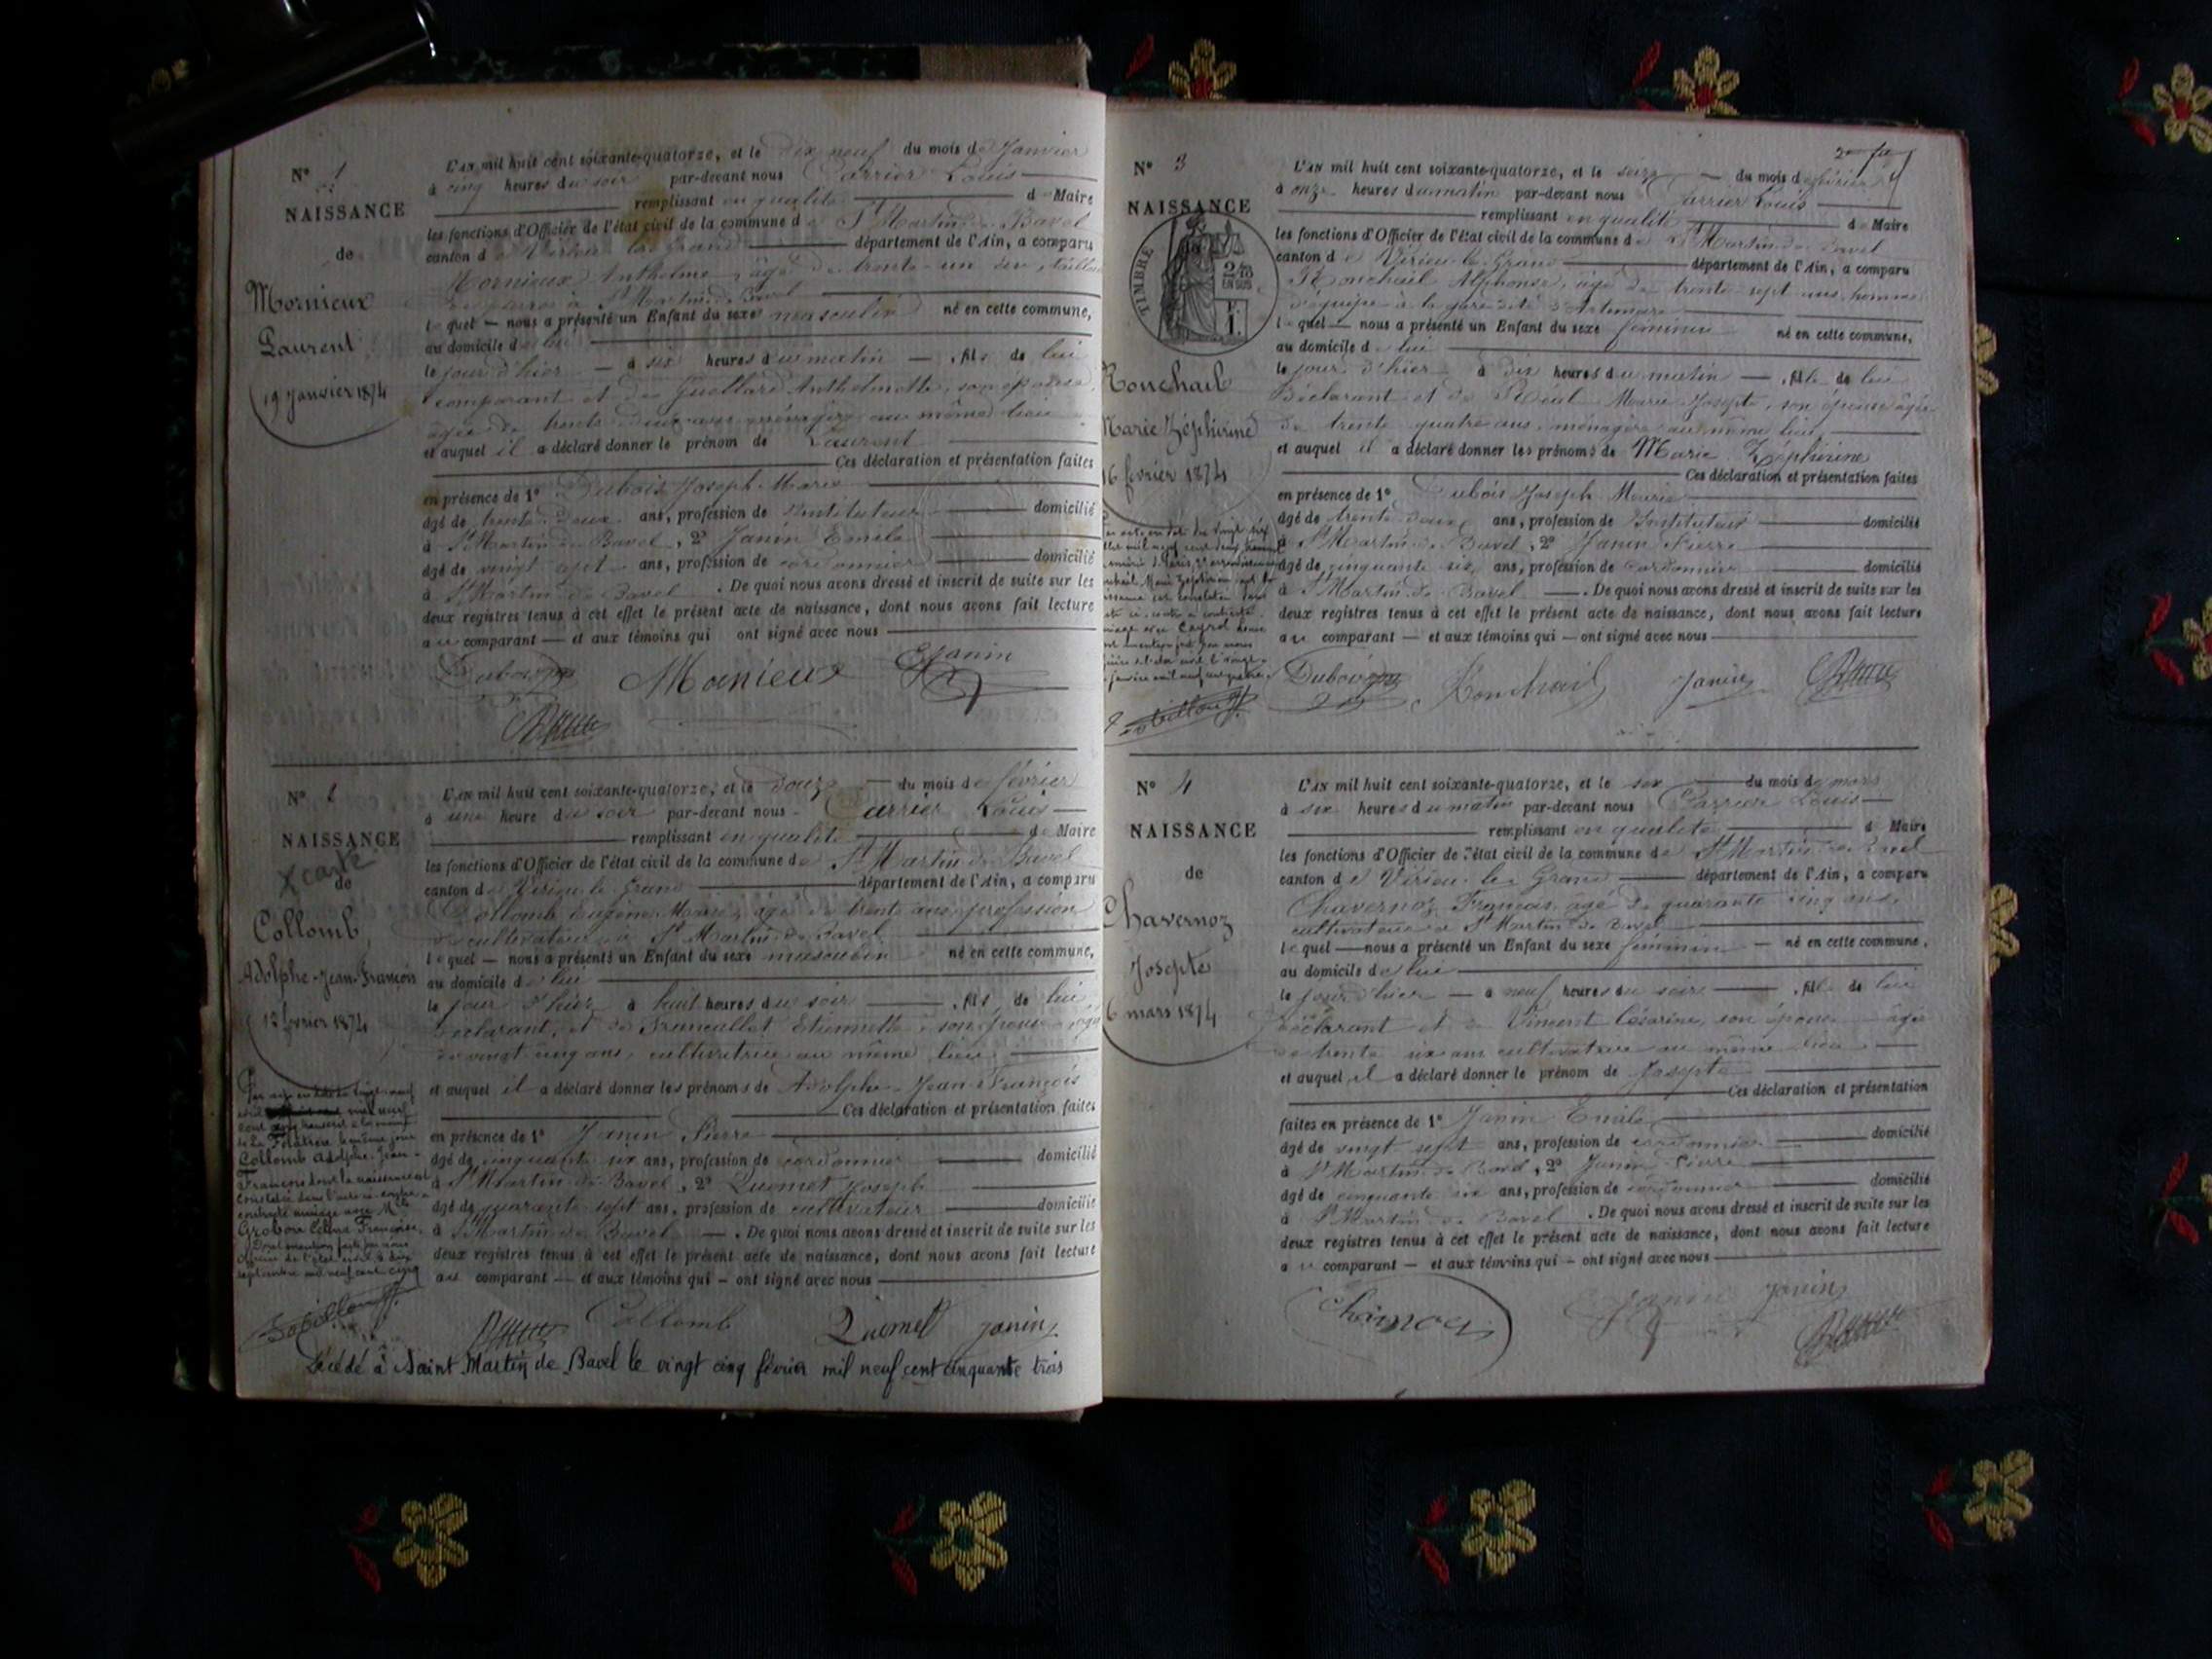 N° 1
NAISSANCE
de
Mornieux
Laurent
19 Janvier 1874
L'AN mil huit cent soixante-quatorze, et le dix neuf du mois de Janvier
à cinq heures du soir par-devant nous Carrier Louis
remplissant en qualité de Maire
les fonctions d'Officier de l'état civil de la commune de St Martin de Bavel
canton de Virieu le Grand département de l'Ain, a comparu
Mornieux Anthelme, âgé de trente un ans,
à St Martin de Bavel
lequel nous a présenté un Enfant du sexe masculin né en cette commune,
au domicile de lui
le jour d'hier à six heures du matin , fils de lui
comparant et de Anthelmette, son épouse,
âgée de trente deux ans ménagère au même lieu
et auquel il a déclaré donner le prénom de Laurent
Ces déclaration et présentation faites
en présence de 1° Dubois Joseph Marie
âgé de trente deux ans, profession de Instituteur domicilié
à St Martin de Bavel, 2° Janin Emile
âgé de vingt sept ans, profession de cordonnier domicilié
à St Martin de Bavel . De quoi nous avons dressé et inscrit de suite sur les
deux registres tenus à cet effet le présent acte de naissance, dont nous avons fait lecture
au comparant et aux témoins qui ont signé avec nous
Dubois Mornieux E Janin
N° 2
NAISSANCE
X carte
de
Collomb
Adolphe-Jean-François
12 février 1874
L'AN mil huit cent soixante-quatorze, et le douze du mois de février
à une heure du soir par-devant nous Carrier Louis
remplissant en qualité de Maire
les fonctions d'Officier de l'état civil de la commune de St Martin de Bavel
canton de Virieu le Grand département de l'Ain, a comparu
Collomb Eugène Marie, âgé de trente ans, profession
de cultivateur à St Martin de Bavel
lequel nous a présenté un Enfant du sexe masculin né en cette commune,
au domicile de lui
le jour d'hier à huit heures du soir , fils de lui
déclarant, et de Brancallet Etiennette, son épouse, âgée
de vingt cinq ans, cultivatrice au même lieu
et auquel il a déclaré donner les prénoms de Adolphe-Jean-François
Ces déclaration et présentation faites
en présence de 1° Janin Pierre
âgé de cinquante six ans, profession de cordonnier domicilié
à St Martin de Bavel, 2° Quomet Joseph
âgé de quarante sept ans, profession de cultivateur domicilié
à St Martin de Bavel . De quoi nous avons dressé et inscrit de suite sur les
deux registres tenus à cet effet le présent acte de naissance, dont nous avons fait lecture
au comparant et aux témoins qui ont signé avec nous
Collomb Quomet Janin
Collomb Adolphe-Jean-
François dont la naissance est
constatée dans l'acte ci-contre a
contracté mariage avec Mlle
Grobon Céline Françoise.
Dont mention faite par nous
officier de l'état civil le dix
septembre mil neuf cent cinq
Décédé à Saint Martin de Bavel le vingt cinq février mil neuf cent cinquante trois
N° 3
NAISSANCE
TIMBRE
2/10 EN SUS
1 F.
Ronchail
Marie Zéphirine
16 février 1874
L'AN mil huit cent soixante-quatorze, et le seize du mois de février
à onze heures du matin par-devant nous Carrier Louis
remplissant en qualité de Maire
les fonctions d'Officier de l'état civil de la commune de St Martin de Bavel
canton de Virieu le Grand département de l'Ain, a comparu
Ronchail Alphonse, âgé de trente sept ans, homme
d'équipe à la gare dite d'Artemare
lequel nous a présenté un Enfant du sexe féminin né en cette commune,
au domicile de lui
le jour d'hier à dix heures du matin , fille de lui
déclarant et de Réal Marie Josepte, son épouse âgée
de trente quatre ans, ménagère au même lieu,
et auquel il a déclaré donner les prénoms de Marie Zéphirine
Ces déclaration et présentation faites
en présence de 1° Dubois Joseph Marie
âgé de trente deux ans, profession de Instituteur domicilié
à St Martin de Bavel, 2° Janin Pierre
âgé de cinquante six ans, profession de cordonnier domicilié
à St Martin de Bavel . De quoi nous avons dressé et inscrit de suite sur les
deux registres tenus à cet effet le présent acte de naissance, dont nous avons fait lecture
au comparant et aux témoins qui ont signé avec nous
Dubois Ronchail Janin
N° 4
NAISSANCE
de
Chavernoz
Josepte
6 mars 1874
L'AN mil huit cent soixante-quatorze, et le six du mois de mars
à six heures du matin par-devant nous Carrier Louis
remplissant en qualité de Maire
les fonctions d'Officier de l'état civil de la commune de St Martin de Bavel
canton de Virieu le Grand département de l'Ain, a comparu
Chavernoz François, âgé de quarante cinq ans,
cultivateur à St Martin de Bavel
lequel nous a présenté un Enfant du sexe féminin né en cette commune,
au domicile de lui
le jour d'hier à neuf heures du soir , fille de lui
déclarant et de Vincent Césarine, son épouse âgée
de trente six ans cultivatrice au même lieu
et auquel il a déclaré donner le prénom de Josepte
Ces déclaration et présentation
faites en présence de 1° Janin Emile
âgé de vingt sept ans, profession de cordonnier domicilié
à St Martin de Bavel, 2° Janin Pierre
âgé de cinquante six ans, profession de cordonnier domicilié
à St Martin de Bavel . De quoi nous avons dressé et inscrit de suite sur les
deux registres tenus à cet effet le présent acte de naissance, dont nous avons fait lecture
au comparant et aux témoins qui ont signé avec nous
Janin Janin